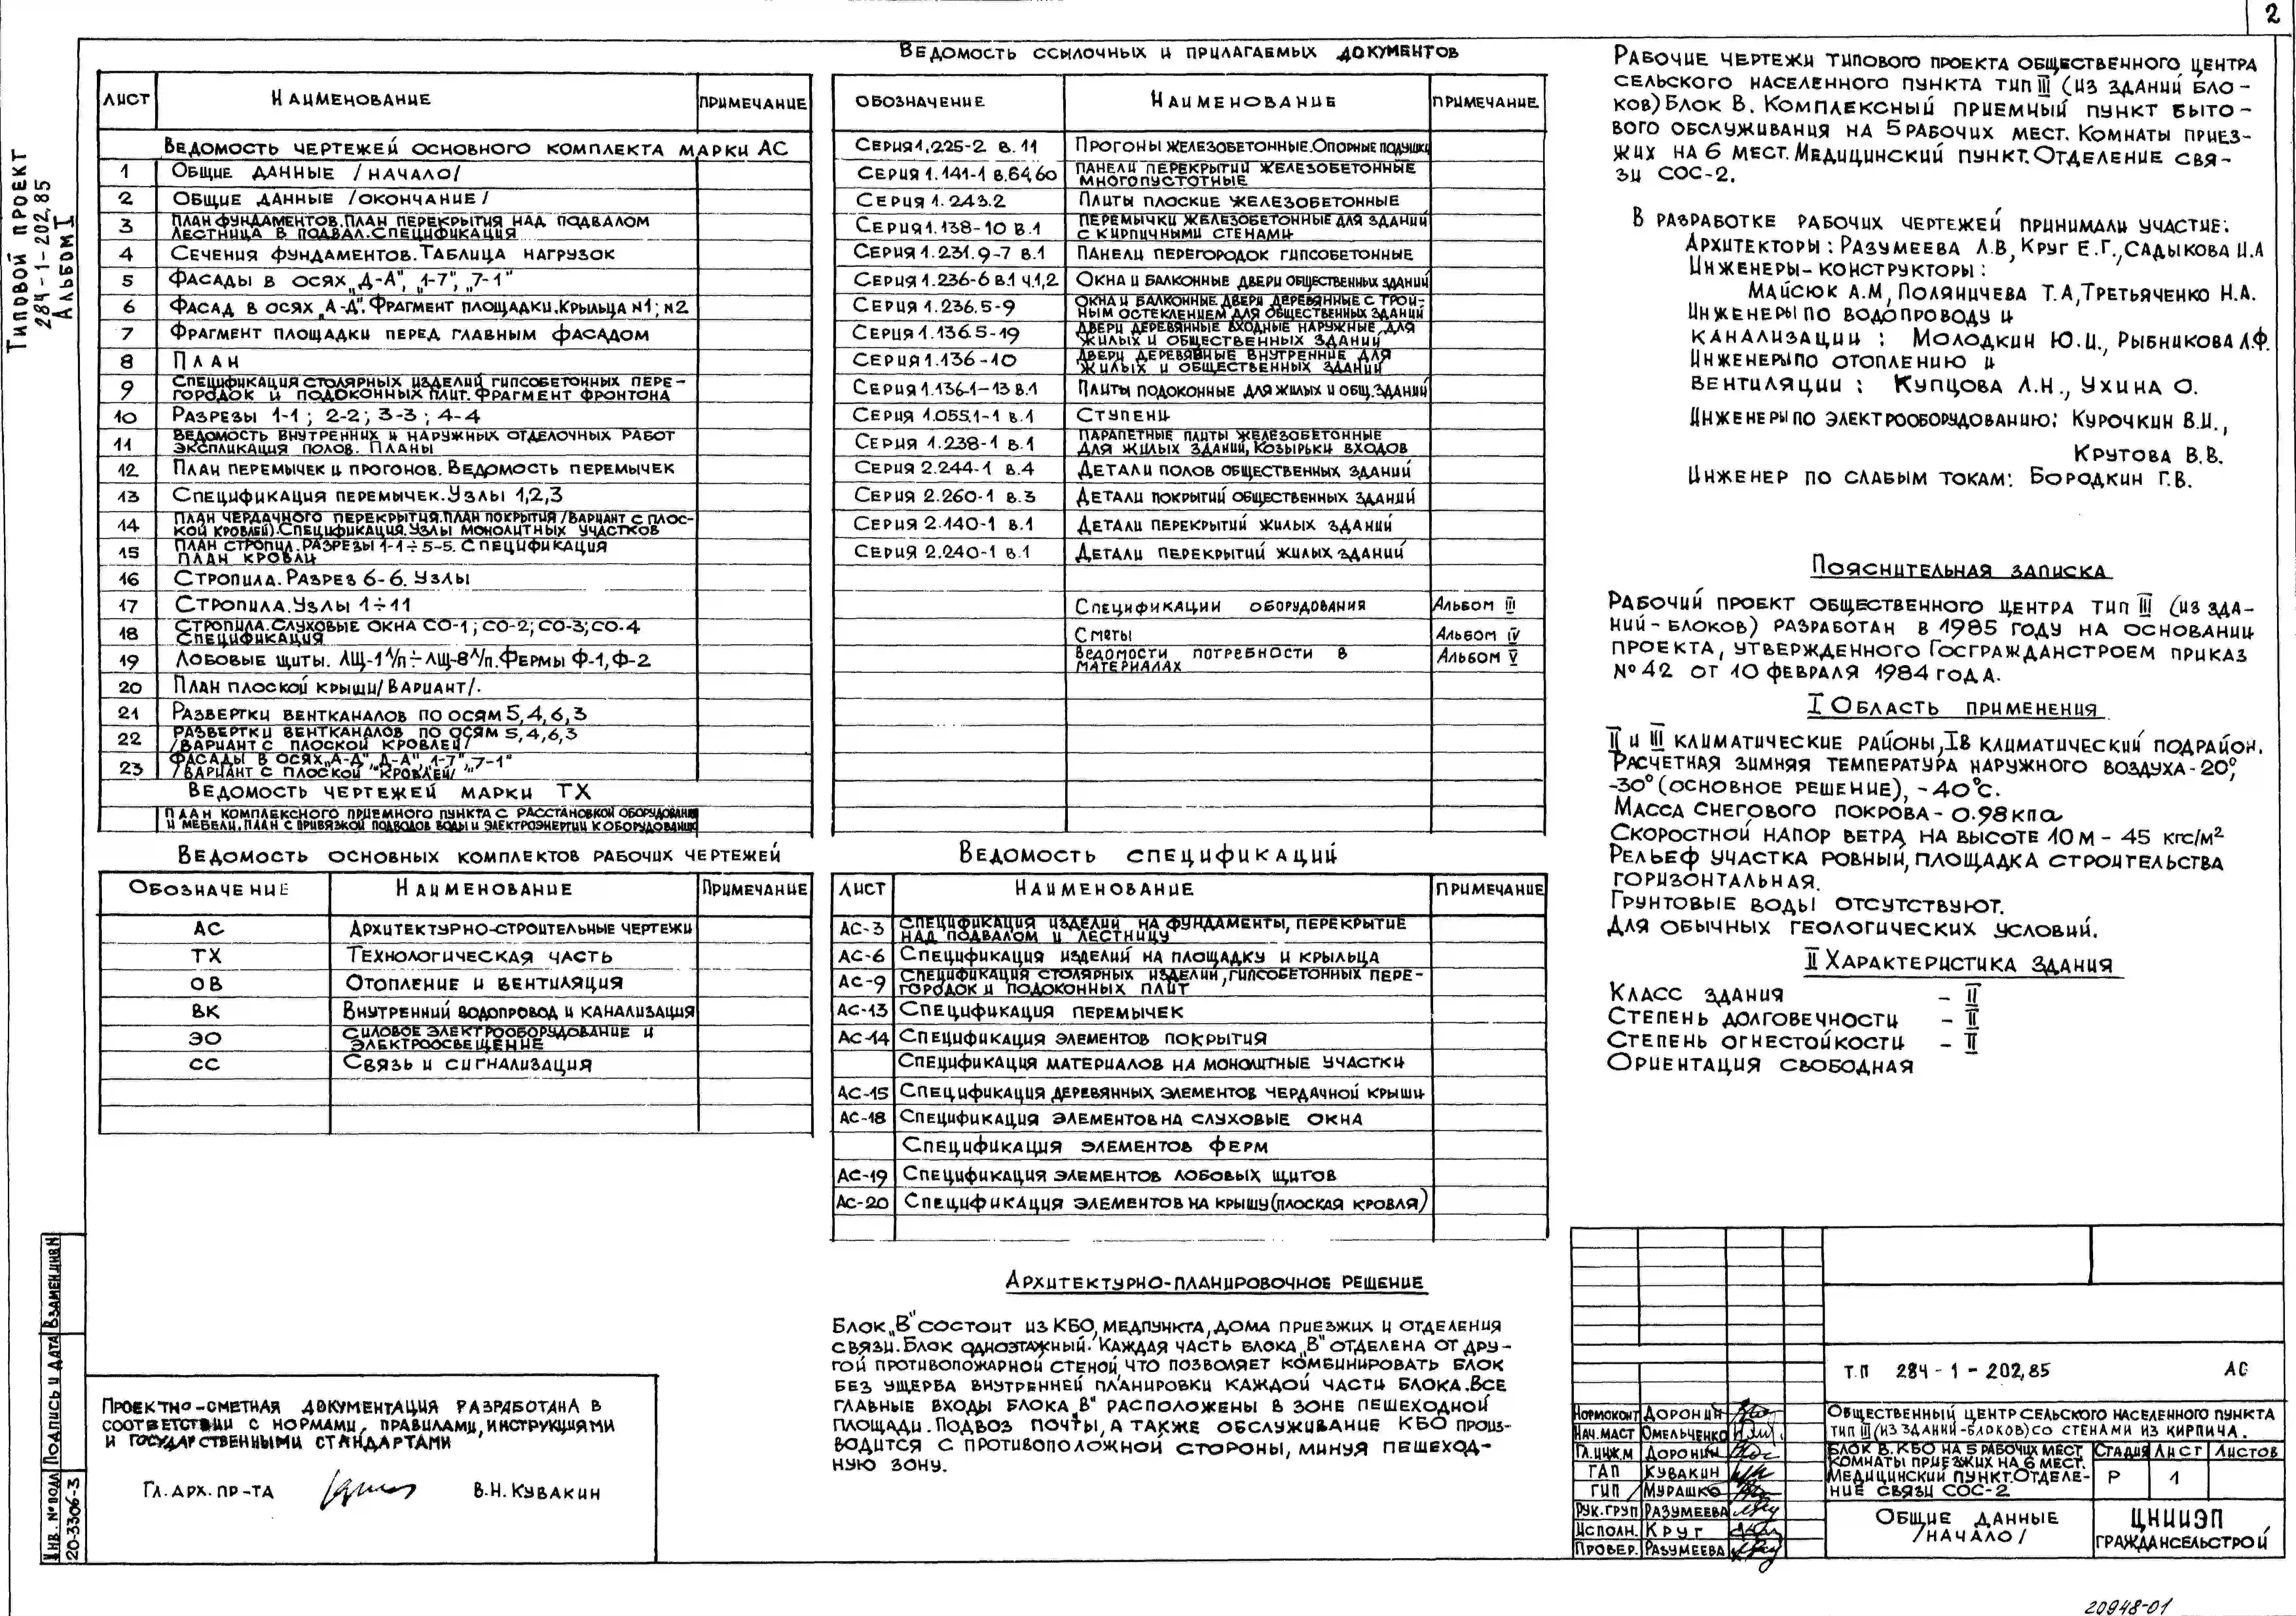 2
Типовой проект
284-1-202.85
Альбом I
Лист Наименование Примечание
Ведомость чертежей основного комплекта марки АС
1 Общие данные /начало/
2 Общие данные /окончание/
3 План фундаментов. План перекрытия над подвалом
Лестница в подвал. Спецификация
4 Сечения фундаментов. Таблица нагрузок
5 Фасады в осях „Д-А", „1-7", „7-1"
6 Фасад в осях „А-Д". Фрагмент площадки. Крыльца н1; н2
7 Фрагмент площадки перед главным фасадом
8 План
9 Спецификация столярных изделий гипсобетонных пере-
городок и подоконных плит. Фрагмент фронтона
10 Разрезы 1-1; 2-2; 3-3; 4-4
11 Ведомость внутренних и наружных отделочных работ
Экспликация полов. Планы
12 План перемычек и прогонов. Ведомость перемычек
13 Спецификация перемычек. Узлы 1,2,3
14 План чердачного перекрытия. План покрытия /вариант с плос-
кой кровлей/. Спецификация. Узлы монолитных участков
15 План стропил. Разрезы 1-1÷5-5. Спецификация
План кровли
16 Стропила. Разрез 6-6. Узлы
17 Стропила. Узлы 1÷11
18 Стропила. Слуховые окна СО-1; СО-2; СО-3; СО-4
Спецификация
19 Лобовые щиты. ЛЩ-1 л/п÷ЛЩ-8 л/п. Фермы Ф-1, Ф-2
20 План плоской крыши /вариант/.
21 Развертки вентканалов по осям 5,4,6,3
22 Развертки вентканалов по осям 5,4,6,3
/вариант с плоской кровлей/
23 Фасады в осях „А-Д", „Д-А", „1-7", „7-1"
/вариант с плоской кровлей/
Ведомость чертежей марки ТХ
План комплексного приемного пункта с расстановкой оборудования
и мебели. План с привязкой подводов воды и электроэнергии к оборудованию
Ведомость основных комплектов рабочих чертежей
Обозначение Наименование Примечание
АС Архитектурно-строительные чертежи
ТХ Технологическая часть
ОВ Отопление и вентиляция
ВК Внутренний водопровод и канализация
ЭО Силовое электрооборудование и
электроосвещение
СС Связь и сигнализация
Проектно-сметная документация разработана в
соответствии с нормами, правилами, инструкциями
и государственными стандартами
Гл. арх. пр-та В.Н. Кувакин
Инв. № подл Подпись и дата Взамен инв N
20-3306-3
Ведомость ссылочных и прилагаемых документов
Обозначение Наименование Примечание
Серия 1.225-2 в. 11 Прогоны железобетонные. Опорные подушки
Серия 1.141-1 в.64,60 Панели перекрытий железобетонные
многопустотные
Серия 1.243.2 Плиты плоские железобетонные
Серия 1.138-10 в.1 Перемычки железобетонные для зданий
с кирпичными стенами
Серия 1.231.9-7 в.1 Панели перегородок гипсобетонные
Серия 1.236-6 в.1 ч.1,2 Окна и балконные двери общественных зданий
Серия 1.236.5-9 Окна и балконные двери деревянные с трой-
ным остеклением для общественных зданий
Серия 1.136.5-19 Двери деревянные входные наружные для
жилых и общественных зданий
Серия 1.136-10 Двери деревянные внутренние для
жилых и общественных зданий
Серия 1.136.1-13 в.1 Плиты подоконные для жилых и общ. зданий
Серия 1.055.1-1 в.1 Ступени
Серия 1.238-1 в.1 Парапетные плиты железобетонные
для жилых зданий, Козырьки входов
Серия 2.244-1 в.4 Детали полов общественных зданий
Серия 2.260-1 в.3 Детали покрытий общественных зданий
Серия 2.140-1 в.1 Детали перекрытий жилых зданий
Серия 2.240-1 в.1 Детали перекрытий жилых зданий
Спецификации оборудования Альбом III
Сметы Альбом IV
Ведомости потребности в
материалах Альбом V
Ведомость спецификаций
Лист Наименование Примечание
АС-3 Спецификация изделий на фундаменты, перекрытие
над подвалом и лестницу
АС-6 Спецификация изделий на площадку и крыльца
АС-9 Спецификация столярных изделий, гипсобетонных пере-
городок и подоконных плит
АС-13 Спецификация перемычек
АС-14 Спецификация элементов покрытия
Спецификация материалов на монолитные участки
АС-15 Спецификация деревянных элементов чердачной крыши
АС-18 Спецификация элементов на слуховые окна
Спецификация элементов ферм
АС-19 Спецификация элементов лобовых щитов
АС-20 Спецификация элементов на крышу (плоская кровля)
Архитектурно-планировочное решение
Блок „В" состоит из КБО, медпункта, дома приезжих и отделения
связи. Блок одноэтажный. Каждая часть блока „В" отделена от дру-
гой противопожарной стеной, что позволяет комбинировать блок
без ущерба внутренней планировки каждой части блока. Все
главные входы блока „В" расположены в зоне пешеходной
площади. Подвоз почты, а также обслуживание КБО произ-
водится с противоположной стороны, минуя пешеход-
ную зону.
Рабочие чертежи типового проекта общественного центра
сельского населенного пункта тип III (из зданий бло-
ков) Блок В. Комплексный приемный пункт быто-
вого обслуживания на 5 рабочих мест. Комнаты приез-
жих на 6 мест. Медицинский пункт. Отделение свя-
зи СОС-2.
В разработке рабочих чертежей принимали участие:
Архитекторы: Разумеева Л.В, Круг Е.Г., Садыкова И.А
Инженеры-конструкторы:
Майсюк А.М, Поляничева Т.А, Третьяченко Н.А.
Инженеры по водопроводу и
канализации: Молодкин Ю.И., Рыбникова Л.Ф.
Инженеры по отоплению и
вентиляции: Купцова Л.Н., Ухина О.
Инженеры по электрооборудованию: Курочкин В.И.,
Крутова В.В.
Инженер по слабым токам: Бородкин Г.В.
Пояснительная записка
Рабочий проект общественного центра тип III (из зда-
ний-блоков) разработан в 1985 году на основании
проекта, утвержденного Госгражданстроем приказ
№ 42 от 10 февраля 1984 года.
I Область применения
II и III климатические районы, IВ климатический подрайон.
Расчетная зимняя температура наружного воздуха -20°,
-30° (основное решение), -40°С.
Масса снегового покрова - 0.98 кПа
Скоростной напор ветра на высоте 10м - 45 кгс/м²
Рельеф участка ровный, площадка строительства
горизонтальная.
Грунтовые воды отсутствуют.
Для обычных геологических условий.
II Характеристика здания
Класс здания - II
Степень долговечности - II
Степень огнестойкости - II
Ориентация свободная
Т.П 284-1-202.85 АС
Нормоконт Доронин
Нач.маст Омельченко
Гл.инж.м Доронин
ГАП Кувакин
ГИП Мурашко
Рук.груп Разумеева
Исполн. Круг
Провер. Разумеева
Общественный центр сельского населенного пункта
тип III (из зданий-блоков) со стенами из кирпича.
Блок В. КБО на 5 рабочих мест
Комнаты приезжих на 6 мест.
Медицинский пункт. Отделе-
ние связи СОС-2
Стадия Лист Листов
Р 1
Общие данные
/начало/
ЦНИИЭП
граждансельстрой
20948-01